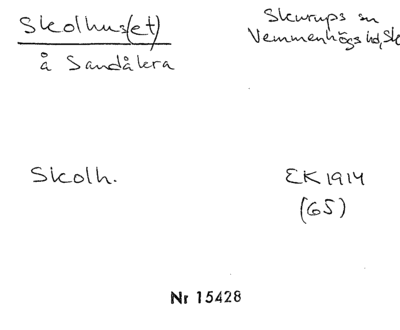 Skolhus(et)
å Sandåkra
Skurups sn
Vemmenhögs hd, Sk
Skolh.
EK 1914
(65)
Nr 15428